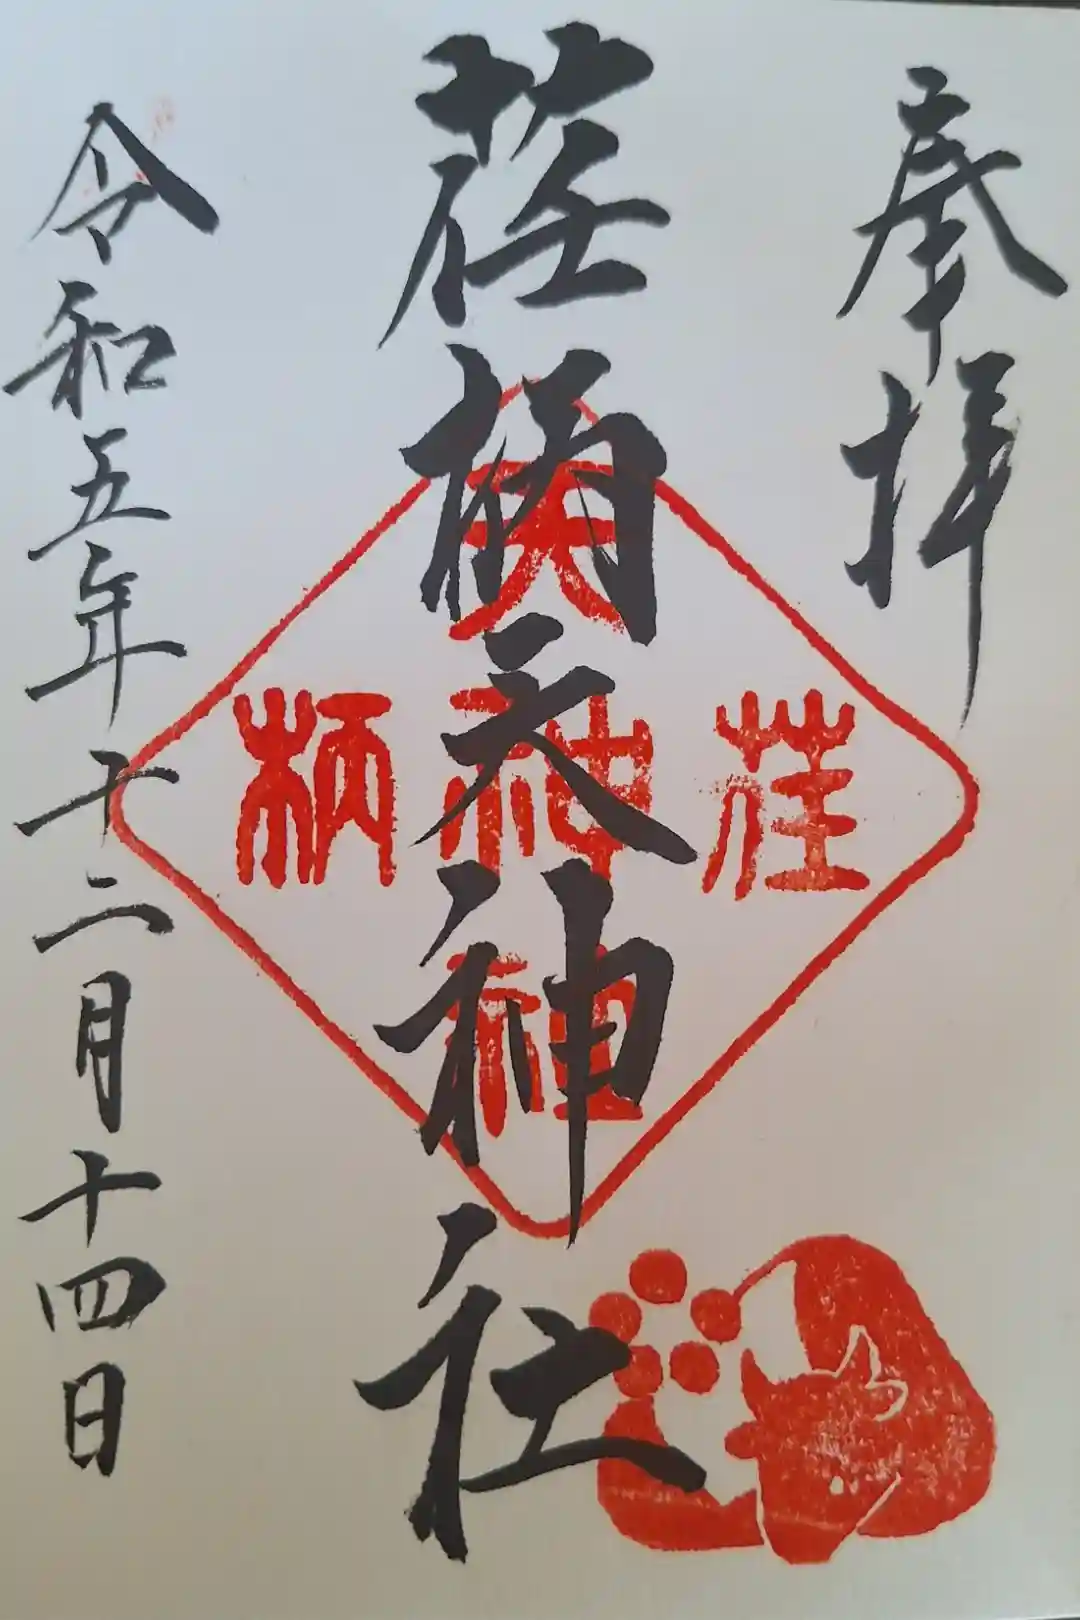 奉拝
荏柄天神社
令和五年十二月十四日
荏
天神社
柄